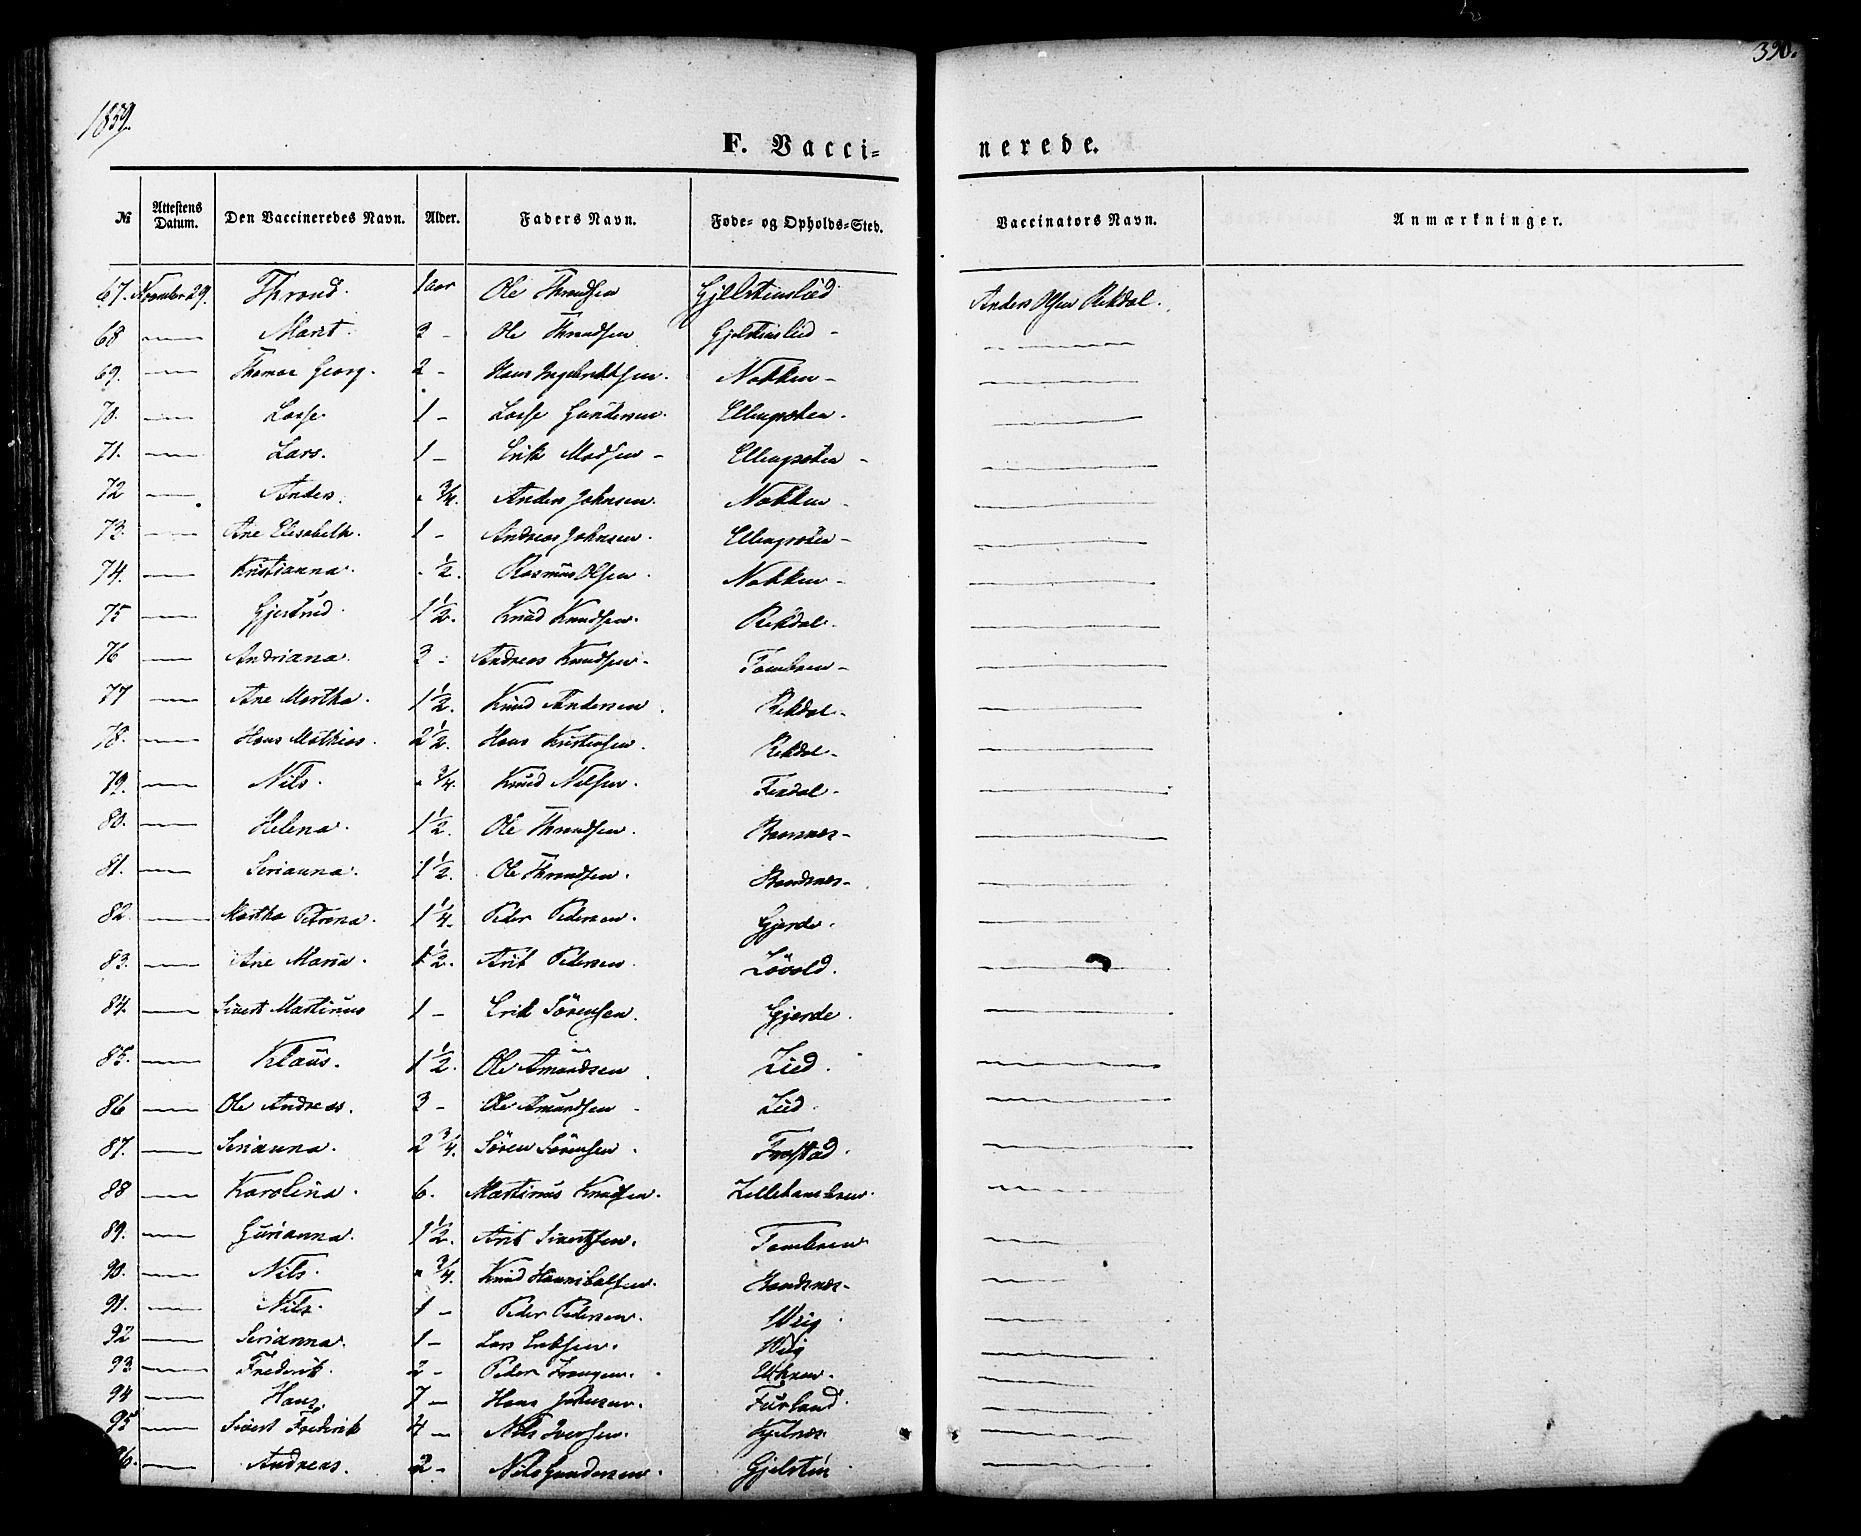 390.
1859.
F. Vacci=
nerede.
№ Attestens Datum. Den Vaccineredes Navn. Alder. Faders Navn. Føde- og Opholds-Sted. Vaccinators Navn. Anmærkninger.
67. November 29. Thrond. 1 aar Ole Throndsen Gjelstenslied Anders Olsen Rekdal.
68 — Marit 3 - Ole Throndsen Gjelstenslied -
69. — Thomas Georg. 2 - Hans Ingebrektsen. Nakken -
70. — Lasse. 1 - Lasse Gundersen. Ellingsæten.
71. — Lars. 1 - Erik Madsen - Ellingsæten -
72 — Anders. " 3/4. Anders Johnsen. Nakken -
73. — Ane Elisabeth. 1 - Andreas Johnsen. Ellingsæten -
74. — Kristianna. - 1/2. Rasmus Olsen. Nakken -
75 — Gjertrud. 1 1/2. Knud Knudsen. Rekdal.
76 — Andriana. 3 - Andreas Knudsen - Tombren -
77 — Ane Martha. 1 1/2. Knud Andersen. Rekdal -
78. — Hans Mathias. 2 1/2. Hans Kristensen. Rekdal -
79. — Nils. " 3/4. Knud Nilsen. Fixdal -
80. — Helena. 1 1/2. Ole Throndsen. Baansnes -
81. — Serianna. 1 1/2. Ole Throndsen. Baadsnes -
82. — Martha Petrina. 1 1/4. Peder Pedersen. Gjerde.
83. — Ane Maria. 1 1/2. Arit Pedersen. Løvold.
84. — Sivert Martinus 1 - Erik Sørensen. Gjerde.
85. — Klaus. 1 1/2. Ole Amundsen. Lied.
86 — Ole Andreas. 3 - Ole Amundsen - Lied.
87. — Serianna. 2 3/4. Søren Sørensen. Frostad.
88 — Karolina. 6. Martinus Knudsen.
89. — Gurianna. 1 1/2. Arit Sivertsen. Tombren
90. — Nils. " 3/4. Knud Hannibalsen. Baadsnes -
91. — Nils. 1 - Peder Pedersen. Wiig.
92 — Serianna. 1 - Lars Eriksen. Wiig
93. — Frederik. 2 - Peder
94 — Hans. 7 - Hans Johnsen. Furland.
95 — Sivert Frederik 4 - Nils Iversen. Kjelnes
96. — Andreas. 2 - Nils Gundersen. Gjelsten.